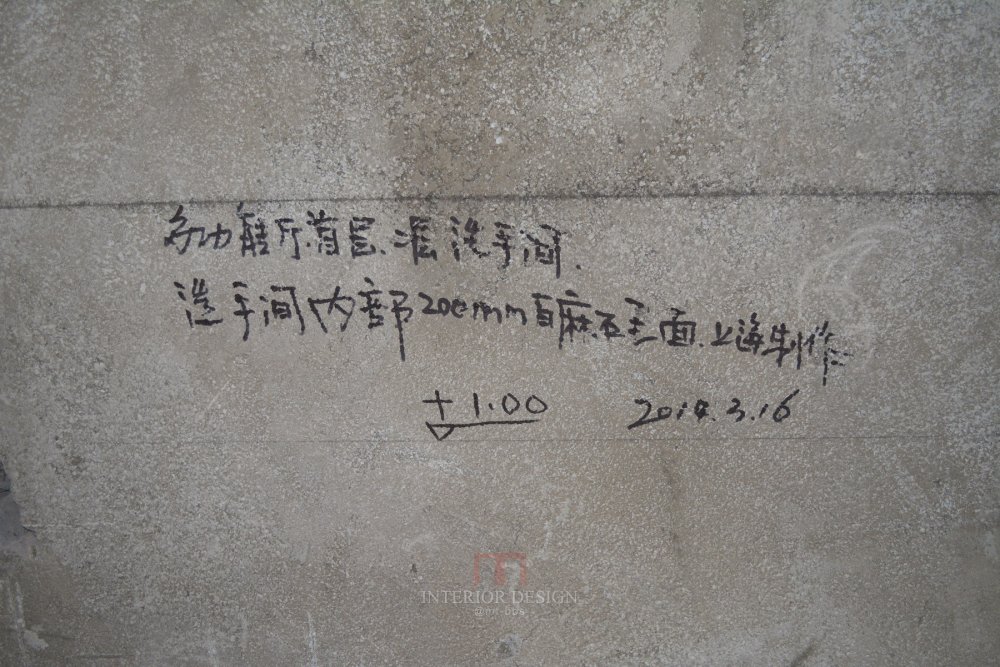 多功能厅首层.准洗手间.
洗手间内部200mm自麻石毛面.上海制作
+1.00
2014.3.16
INTERIOR DESIGN
@mt-bbs